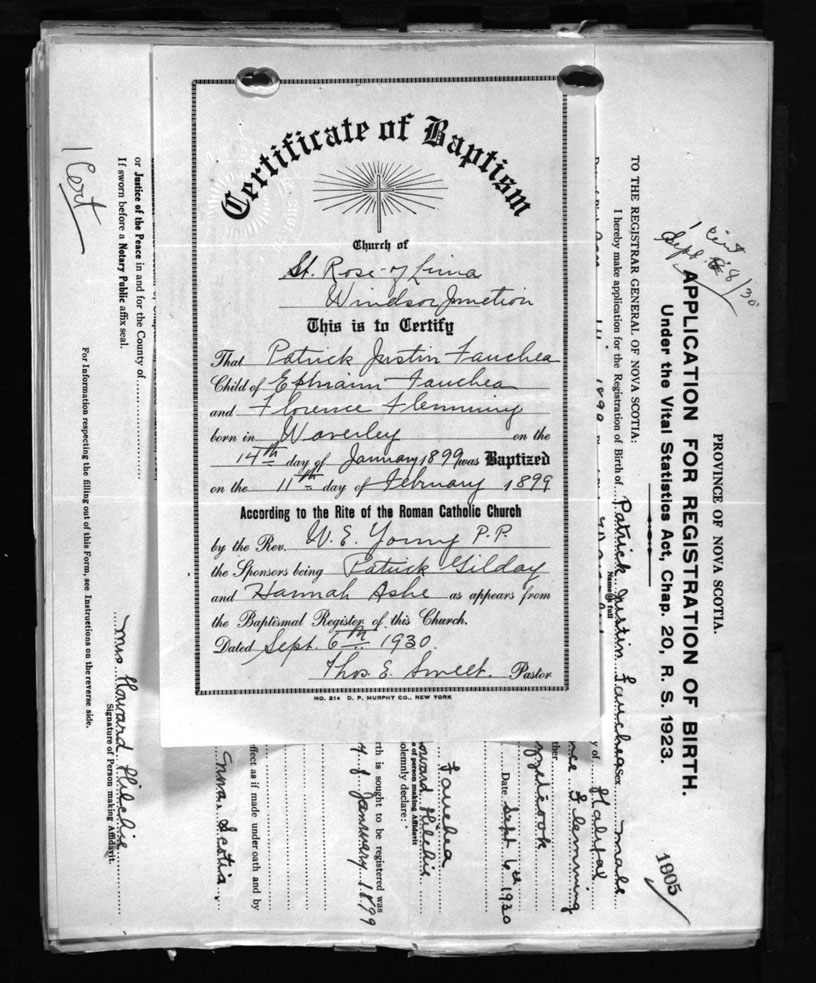 Certificate of Baptism
Church of
St. Rose of Lima
Windsor Junction
This is to Certify
That Patrick Justin Fauchea
Child of Ephraim Fauchea
and Florence Flemming
born in Waverley on the
14th day of January 1899 was Baptized
on the 11th day of February 1899
According to the Rite of the Roman Catholic Church
by the Rev. W. E. Young P.P.
the Sponsors being Patrick Gilday
and Hannah Ashe as appears from
the Baptismal Register of this Church.
Dated Sept. 6th 1930.
Thos. E. Sweet. Pastor
NO. 214 D. P. MURPHY CO., NEW YORK
PROVINCE OF NOVA SCOTIA.
APPLICATION FOR REGISTRATION OF BIRTH.
Under the Vital Statistics Act, Chap. 20, R. S. 1923.
1 Cert
Sept. 8/30
1905
TO THE REGISTRAR GENERAL OF NOVA SCOTIA:
I hereby make application for the Registration of Birth of Patrick Justin Fauchea Sex male
Name in full
y of Halifax
nce Flemming
ther
zzetcook
Date Sept 6th 1930
Fauchea
oward Hilchie
e of person making Affidavit
olemnly declare:
rth is sought to be registered was
y of January 1899
ffect as if made under oath and by
Nova Scotia,
or Justice of the Peace in and for the County of
If sworn before a Notary Public affix seal.
Mrs Howard Hilchie
Signature of Person making Affidavit.
For Information respecting the filling out of this Form, see Instructions on the reverse side.
1 Cert